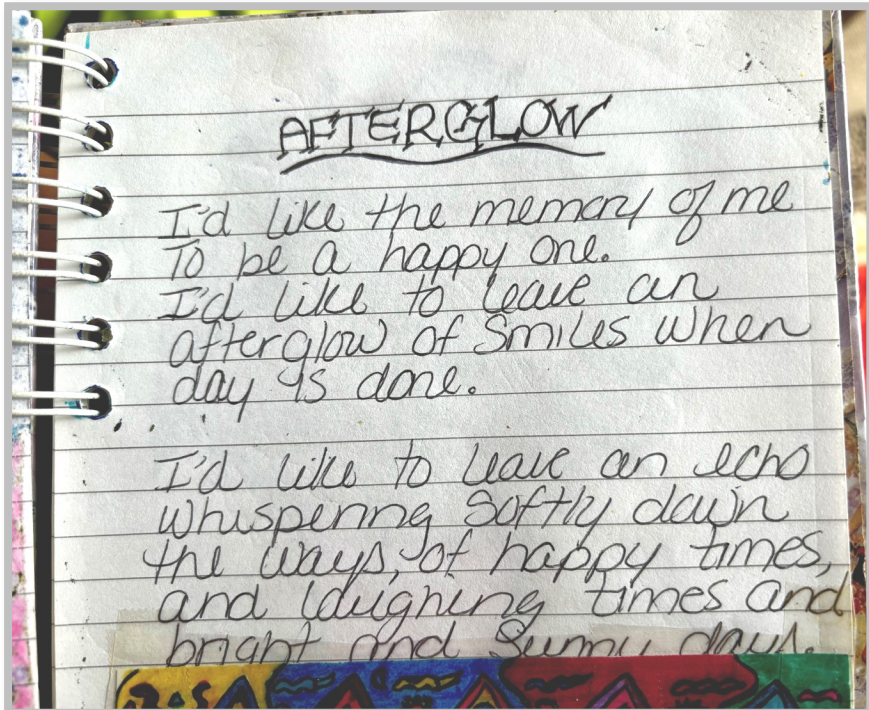 AFTERGLOW
I'd like the memory of me
To be a happy one.
I'd like to leave an
afterglow of smiles when
day is done.
I'd like to leave an echo
whispering softly down
the ways, of happy times,
and laughing times and
bright and sunny days.